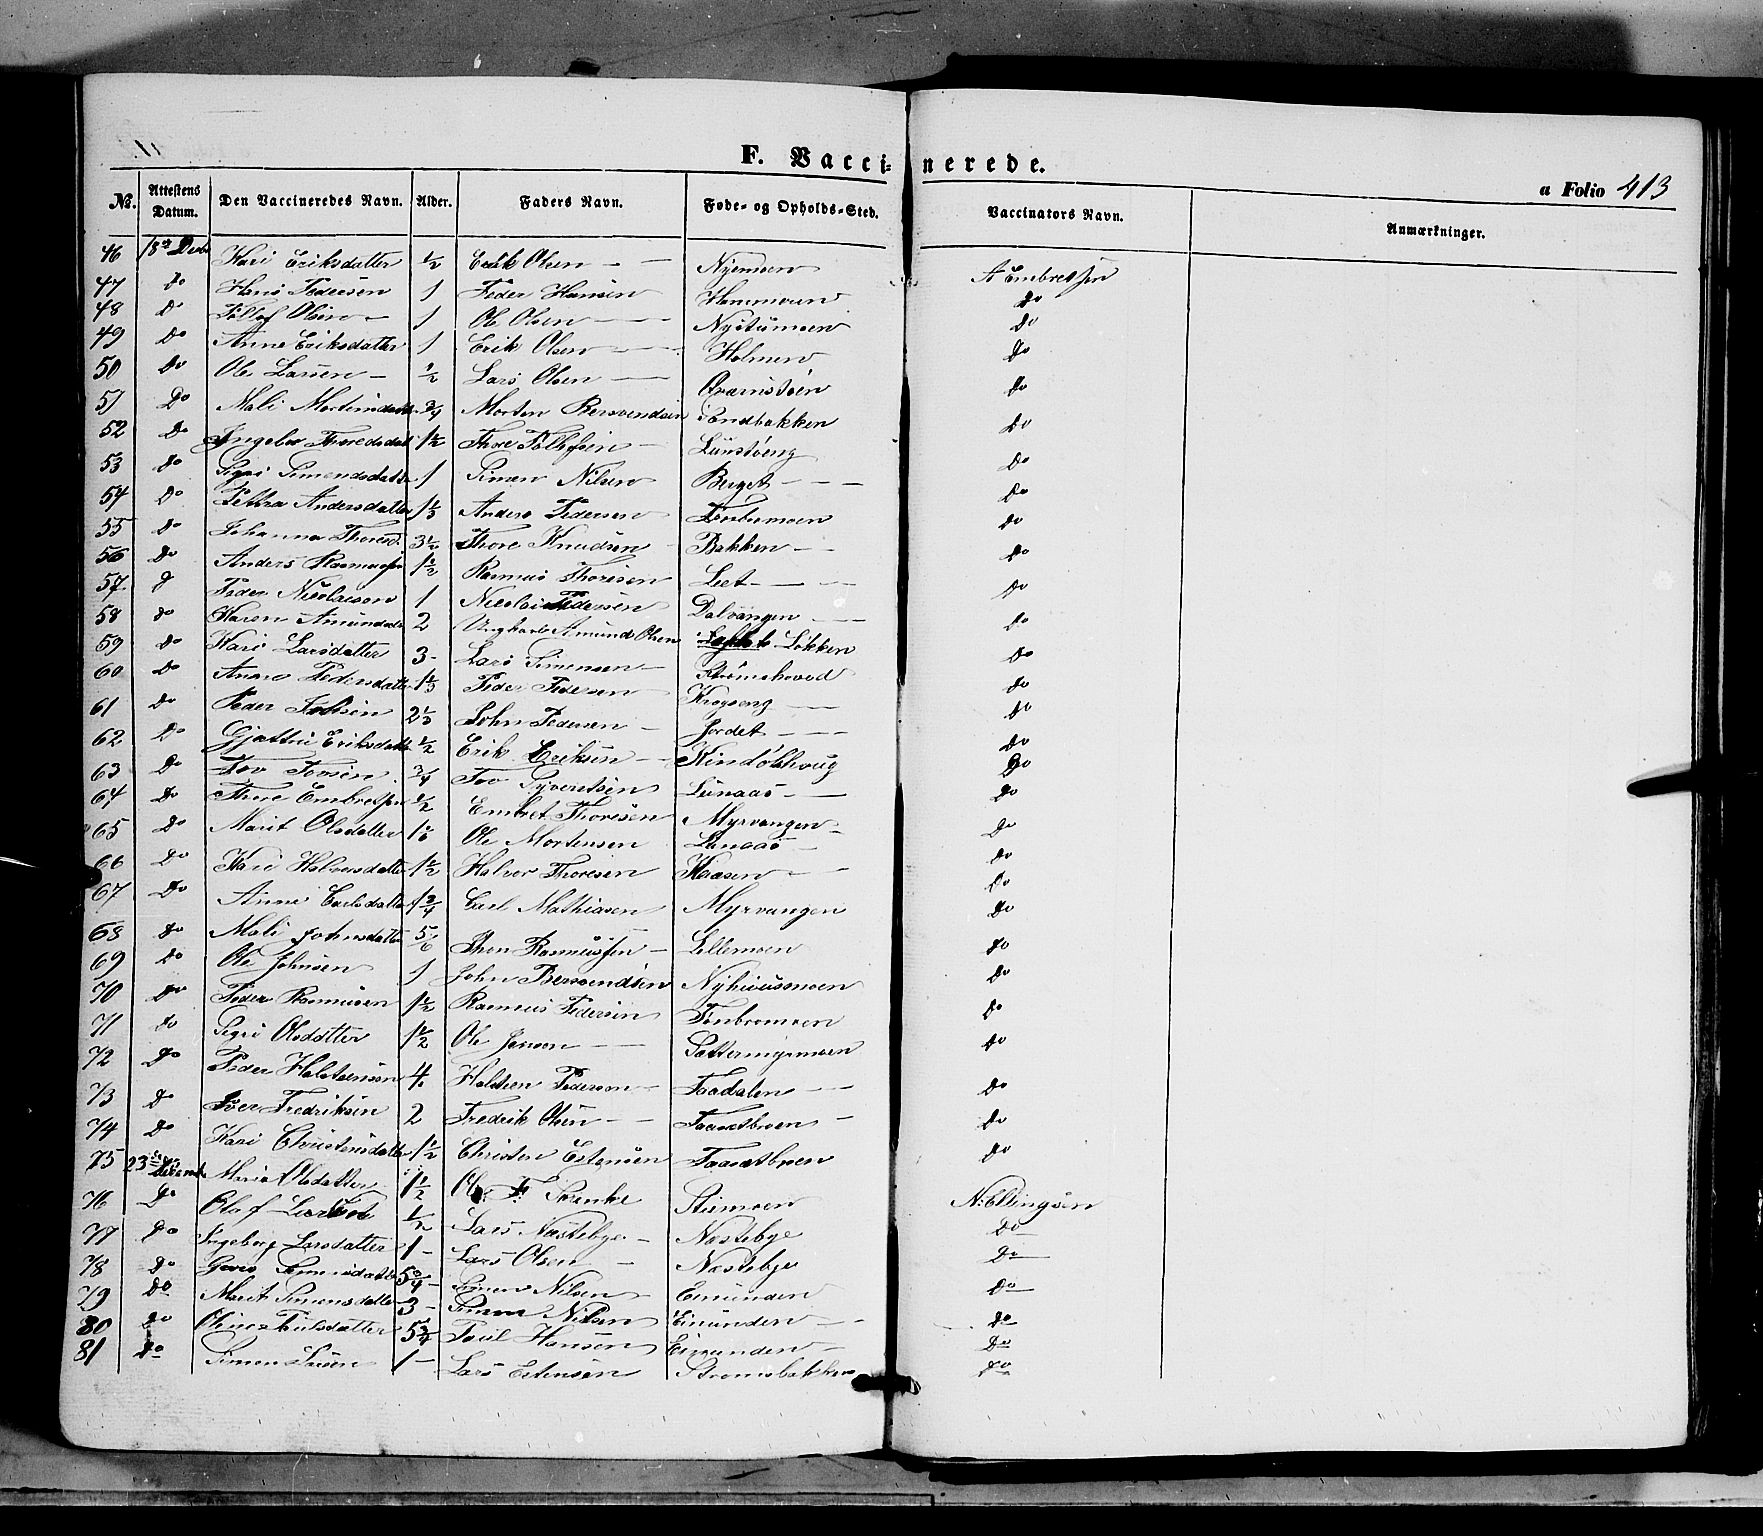 F. Vaccinerede.
a Folio 413
No. Attestens Datum. Den Vaccineredes Navn. Alder. Faders Navn. Føde- og Opholds-Sted. Vaccinators Navn. Anmærkninger.
46 18de Decbr Kari Eriksdatter 1/2 Erik Olsen Nyemoen A Embretsen
47 Do Hans Pedersen 1 Peder Hansen Do
48 Do Olsen 1 Ole Olsen Nystumoen Do
49 Do Anne Eriksdatter 1 Erik Olsen Holmen Do
50 Do Ole Larsen 1/2 Lars Olsen Qvernstøen Do
51 Do Mali Mortensdatter 3/4 Morten Bersvendsen Sandbakken Do
52 Do Ingebor Thoresdat 1 1/2 Thore Tollefsen Lunstøeng Do
53 Do Sigri Simensdatter 1 Simen Nilsen Berget Do
54 Do Pethra Andersdatter Anders Pedersen Do
55 Do Johanna Thoresd. 3 1/2 Thore Knudsen Bakken Do
56 Do Anders Rasmussen 1 1/2 Rasmus Thoresen Leet Do
57 Do Peder Nicolaisen 1 Nicolai Pedersen Dalvangen Do
58 Do Karen Amundsdatter 2 Ungkarl Amund Olsen Løkken Do
59 Do Kari Larsdatter 3 Lars Simensen Strømshoved Do
60 Do Anne Pedersdatter Peder Pedersen Krogseng Do
61 Do Peder Johnsen John Pedersen Jordet Do
62 Do Gjøttri Eriksdatter 1/2 Erik Eriksen Kindølshoug Do
63 Do Tov Tovsen 3/4 Tov Syvertsen Lunaas Do
64 Do Thore Embretsen 1/2 Embret Thoresen Myrvangen Do
65 Do Marit Olsdatter Ole Mortensen Lunaas Do
66 Do Kari Halvorsdatter 1 1/2 Halvor Thoresen Kaasen Do
67 Do Anne Carlsdatter 1 3/4 Carl Mathiasen Myrvangen Do
68 Do Mali Johnsdatter 5/6 John Rasmussen Lillemoen Do
69 Do Ole Johnsen 1 John Bersvendsen Nyhuusmoen Do
70 Do Peder Rasmusen 1 1/2 Rasmus Pedersen Tønbromoen Do
71 Do Sigri Olsdatter 1 1/2 Ole Jensen Sættermyrmoen Do
72 Do Peder Halstensen 4 Halsten Pedersen Faadalen Do
73 Do Iver Fredriksen 2 Fredrik Olsen Faasetbroen Do
74 Do Kari Christensdatter 1 1/2 Christen Estensen Faasetbroen Do
75 23de Decemb Maria Olsdatter 1 1/2 Ole F: Stumoen N. Ellingsen
76 Do Olaf 1/2 Lars Næstebye Næstebye Do
77 Do Ingeborg Larsdatter 1 Lars Olsen Næstebye Do
78 Do Simensdatter 5 3/4 Simen Nilsen Eimunden Do
79 Do Marit Simensdatter 3 Simen Nilsen Eimunden Do
80 Do Oline Poulsdatter 5 3/4 Poul Hansen Eimunden Do
81 Do Simen 1 Lars Estensen Strømsbakken Do